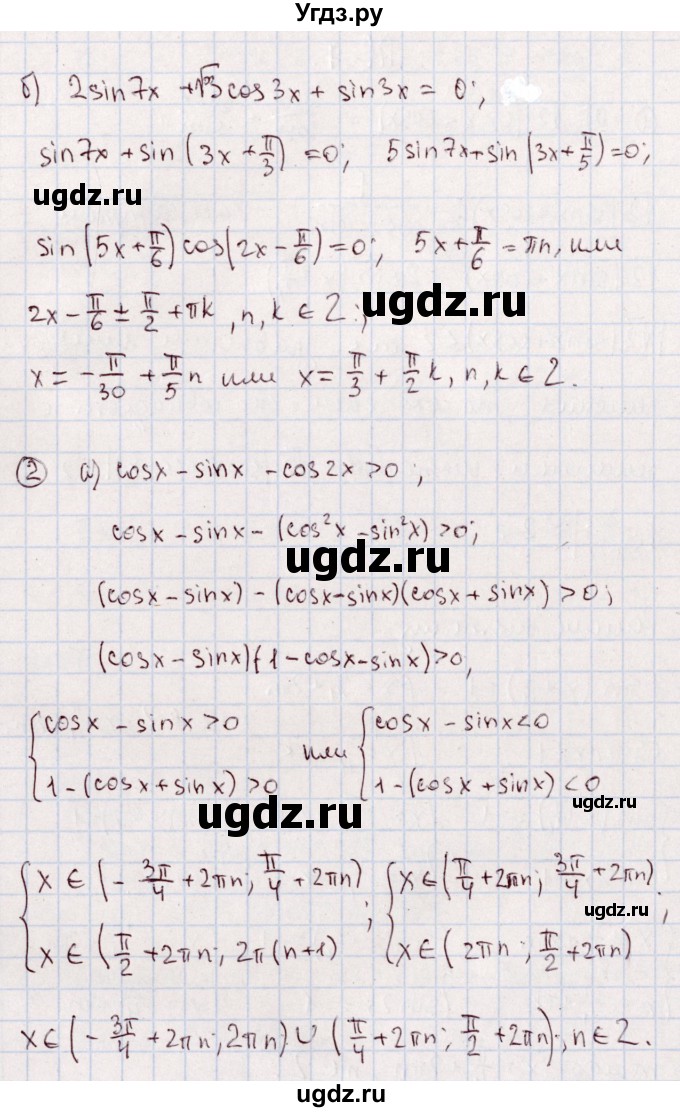 Угдз.ру
б) 2sin7x + √3cos3x + sin3x = 0;
sin7x + sin(3x + π/3) = 0; 5sin7x + sin(3x + π/5) = 0;
ugdz.ru
sin(5x + π/6) cos(2x - π/6) = 0; 5x + π/6 = πn, или
ugdz.ru
2x - π/6 ± π/2 + πk, n, k ∈ Z;
x = -π/30 + π/5 n или x = π/3 + π/2 k, n, k ∈ Z.
② а) cosx - sinx - cos2x > 0;
cosx - sinx - (cos²x - sin²x) > 0;
ugdz.ru
(cosx - sinx) - (cosx - sinx)(cosx + sinx) > 0;
(cosx - sinx)(1 - cosx - sinx) > 0,
{cosx - sinx > 0 или {cosx - sinx < 0
1 - (cosx + sinx) > 0 1 - (cosx + sinx) < 0
ugdz.ru
{x ∈ (-3π/4 + 2πn; π/4 + 2πn) ; {x ∈ (π/4 + 2πn; 3π/4 + 2πn) ;
ugdz.ru
x ∈ (π/2 + 2πn; 2π(n+1) x ∈ (2πn; π/2 + 2πn)
x ∈ (-3π/4 + 2πn; 2πn) ∪ (π/4 + 2πn; π/2 + 2πn); n ∈ Z.
ugdz.ru